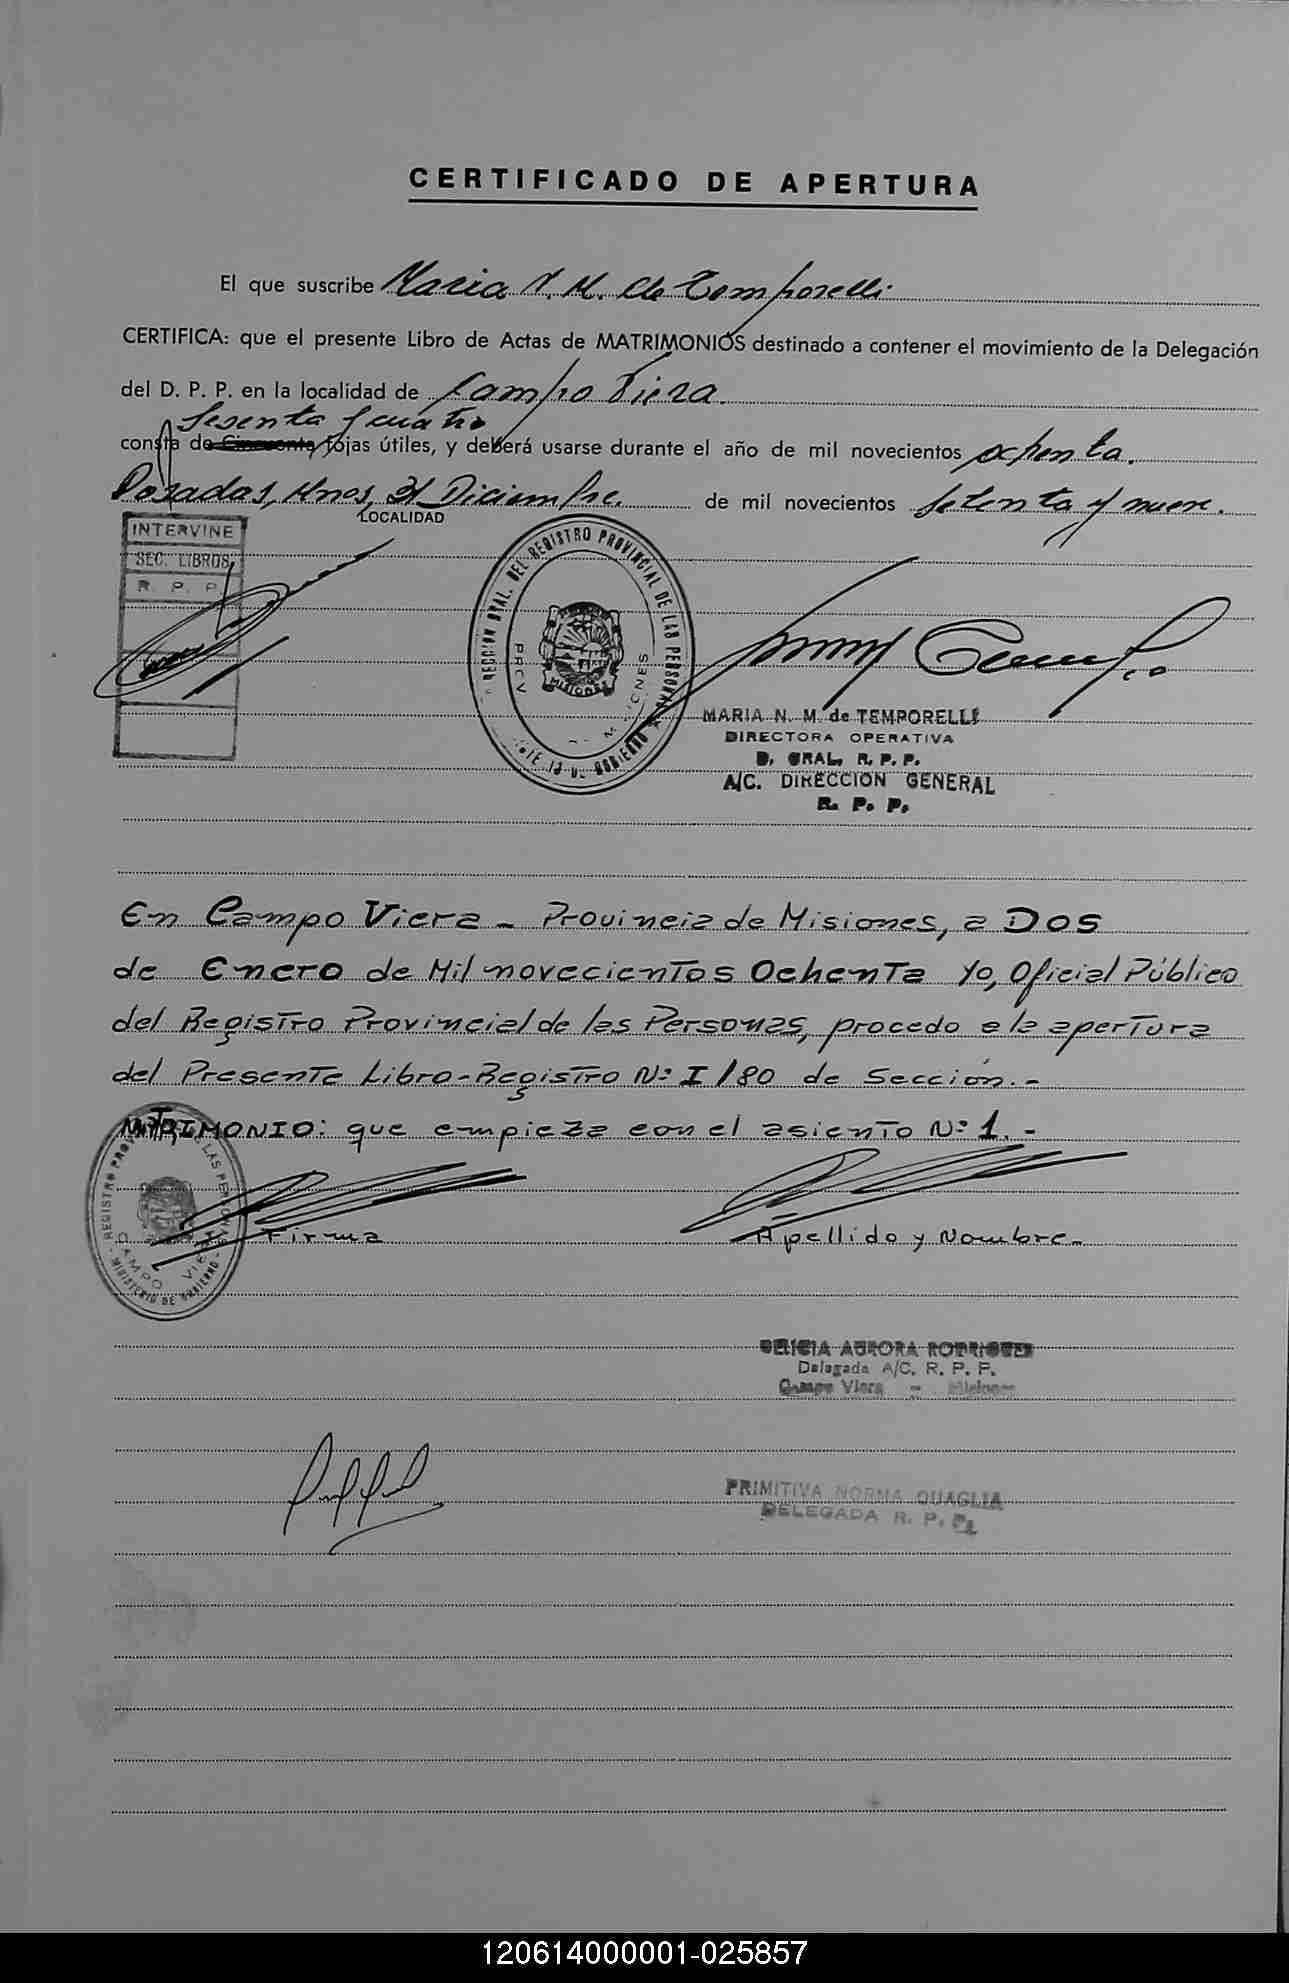 CERTIFICADO DE APERTURA
El que suscribe Maria N. M. de Temporelli
CERTIFICA: que el presente Libro de Actas de MATRIMONIOS destinado a contener el movimiento de la Delegación
del D. P. P. en la localidad de Campo Viera.
Sesenta y cuatro
consta de Cincuenta fojas útiles, y deberá usarse durante el año de mil novecientos ochenta.
Posadas, Mnes, 31 Diciembre. de mil novecientos setenta y nueve.
LOCALIDAD
INTERVINE
SEC. LIBROS
R. P. P.
DIRECCION GRAL. DEL REGISTRO PROVINCIAL DE LAS PERSONAS
MISIONES
MARIA N. M. de TEMPORELLI
DIRECTORA OPERATIVA
D. GRAL. R. P. P.
A/C. DIRECCION GENERAL
R. P. P.
En Campo Viera - Provincia de Misiones, a DOS
de Enero de Mil novecientos Ochenta Yo, Oficial Público
del Registro Provincial de las Personas, procedo a la apertura
del Presente Libro-Registro Nº I/80 de Sección.-
MATRIMONIO: que empieza con el asiento Nº 1.-
REGISTRO PROV LAS PERSONAS
CAMPO VIERA
MINISTERIO DE GOBIERNO
Firma
Apellido y Nombre.-
AURORA RODRIGUEZ
Delegada A/C. R. P. P.
Campo Viera - Misiones
PRIMITIVA NORMA QUAGLIA
DELEGADA R. P. P.
120614000001-025857